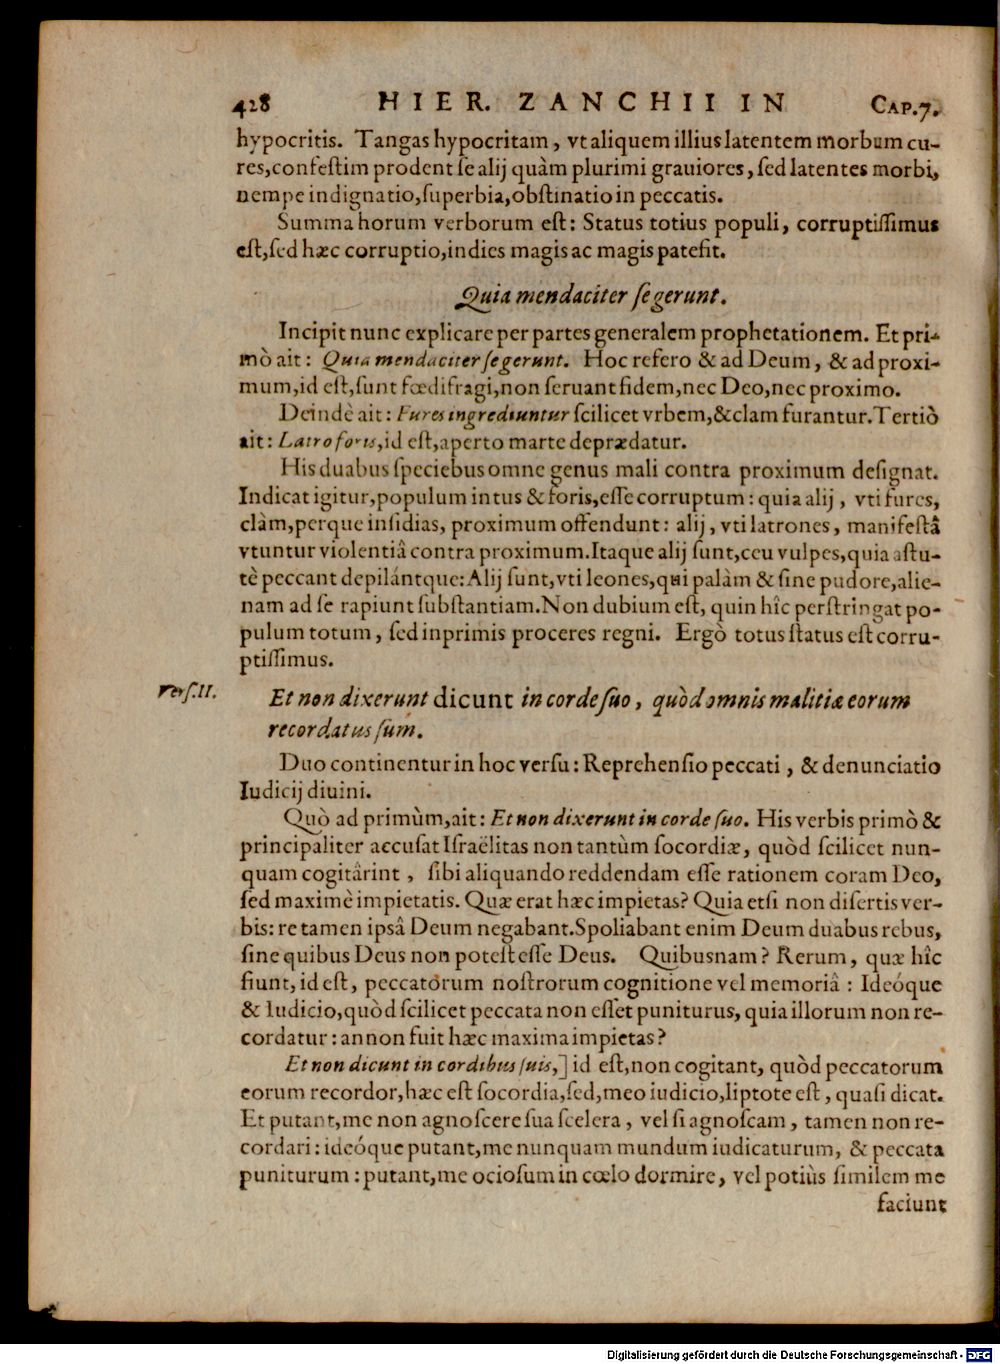 428 HIER. ZANCHII IN CAP.7.
hypocritis. Tangas hypocritam, vt aliquem illius latentem morbum cu-
res, confeſtim prodent ſe alij quàm plurimi grauiores, ſed latentes morbi,
nempe indignatio, ſuperbia, obſtinatio in peccatis.
Summa horum verborum eſt: Status totius populi, corruptiſſimus
eſt, ſed hæc corruptio, indies magis ac magis patefit.
Quia mendaciter ſe gerunt.
Incipit nunc explicare per partes generalem prophetationem. Et pri-
mò ait: Quia mendaciter ſe gerunt. Hoc refero & ad Deum, & ad proxi-
mum, id eſt, ſunt fœdifragi, non ſeruant fidem, nec Deo, nec proximo.
Deinde ait: Fures ingrediuntur ſcilicet vrbem, & clam furantur. Tertiò
ait: Latro foris, id eſt, aperto marte deprædatur.
His duabus ſpeciebus omne genus mali contra proximum deſignat.
Indicat igitur, populum intus & foris, eſſe corruptum: quia alij, vti fures,
clàm, perque inſidias, proximum offendunt: alij, vti latrones, manifeſtâ
vtuntur violentiâ contra proximum. Itaque alij ſunt, ceu vulpes, quia aſtu-
tè peccant depilántque: Alij ſunt, vti leones, qui palàm & ſine pudore, alie-
nam ad ſe rapiunt ſubſtantiam. Non dubium eſt, quin hîc perſtringat po-
pulum totum, ſed inprimis proceres regni. Ergò totus ſtatus eſt corru-
ptiſſimus.
Verſ.II. Et non dixerunt dicunt in corde ſuo, quòd omnis malitiæ eorum
recordatus ſum.
Duo continentur in hoc verſu: Reprehenſio peccati, & denunciatio
Iudicij diuini.
Quò ad primùm, ait: Et non dixerunt in corde ſuo. His verbis primò &
principaliter accuſat Iſraëlitas non tantùm ſocordiæ, quòd ſcilicet nun-
quam cogitârint, ſibi aliquando reddendam eſſe rationem coram Deo,
ſed maximè impietatis. Quæ erat hæc impietas? Quia etſi non diſertis ver-
bis: re tamen ipſâ Deum negabant. Spoliabant enim Deum duabus rebus,
ſine quibus Deus non poteſt eſſe Deus. Quibusnam? Rerum, quæ hîc
fiunt, id eſt, peccatorum noſtrorum cognitione vel memoriâ: Ideóque
& Iudicio, quòd ſcilicet peccata non eſſet puniturus, quia illorum non re-
cordatur: annon fuit hæc maxima impietas?
Et non dicunt in cordibus ſuis,] id eſt, non cogitant, quòd peccatorum
eorum recordor, hæc eſt ſocordia, ſed, meo iudicio, liptote eſt, quaſi dicat.
Et putant, me non agnoſcere ſua ſcelera, vel ſi agnoſcam, tamen non re-
cordari: ideóque putant, me nunquam mundum iudicaturum, & peccata
puniturum: putant, me ocioſum in cœlo dormire, vel potiùs ſimilem me
faciunt
Digitalisierung gefördert durch die Deutsche Forschungsgemeinschaft - DFG